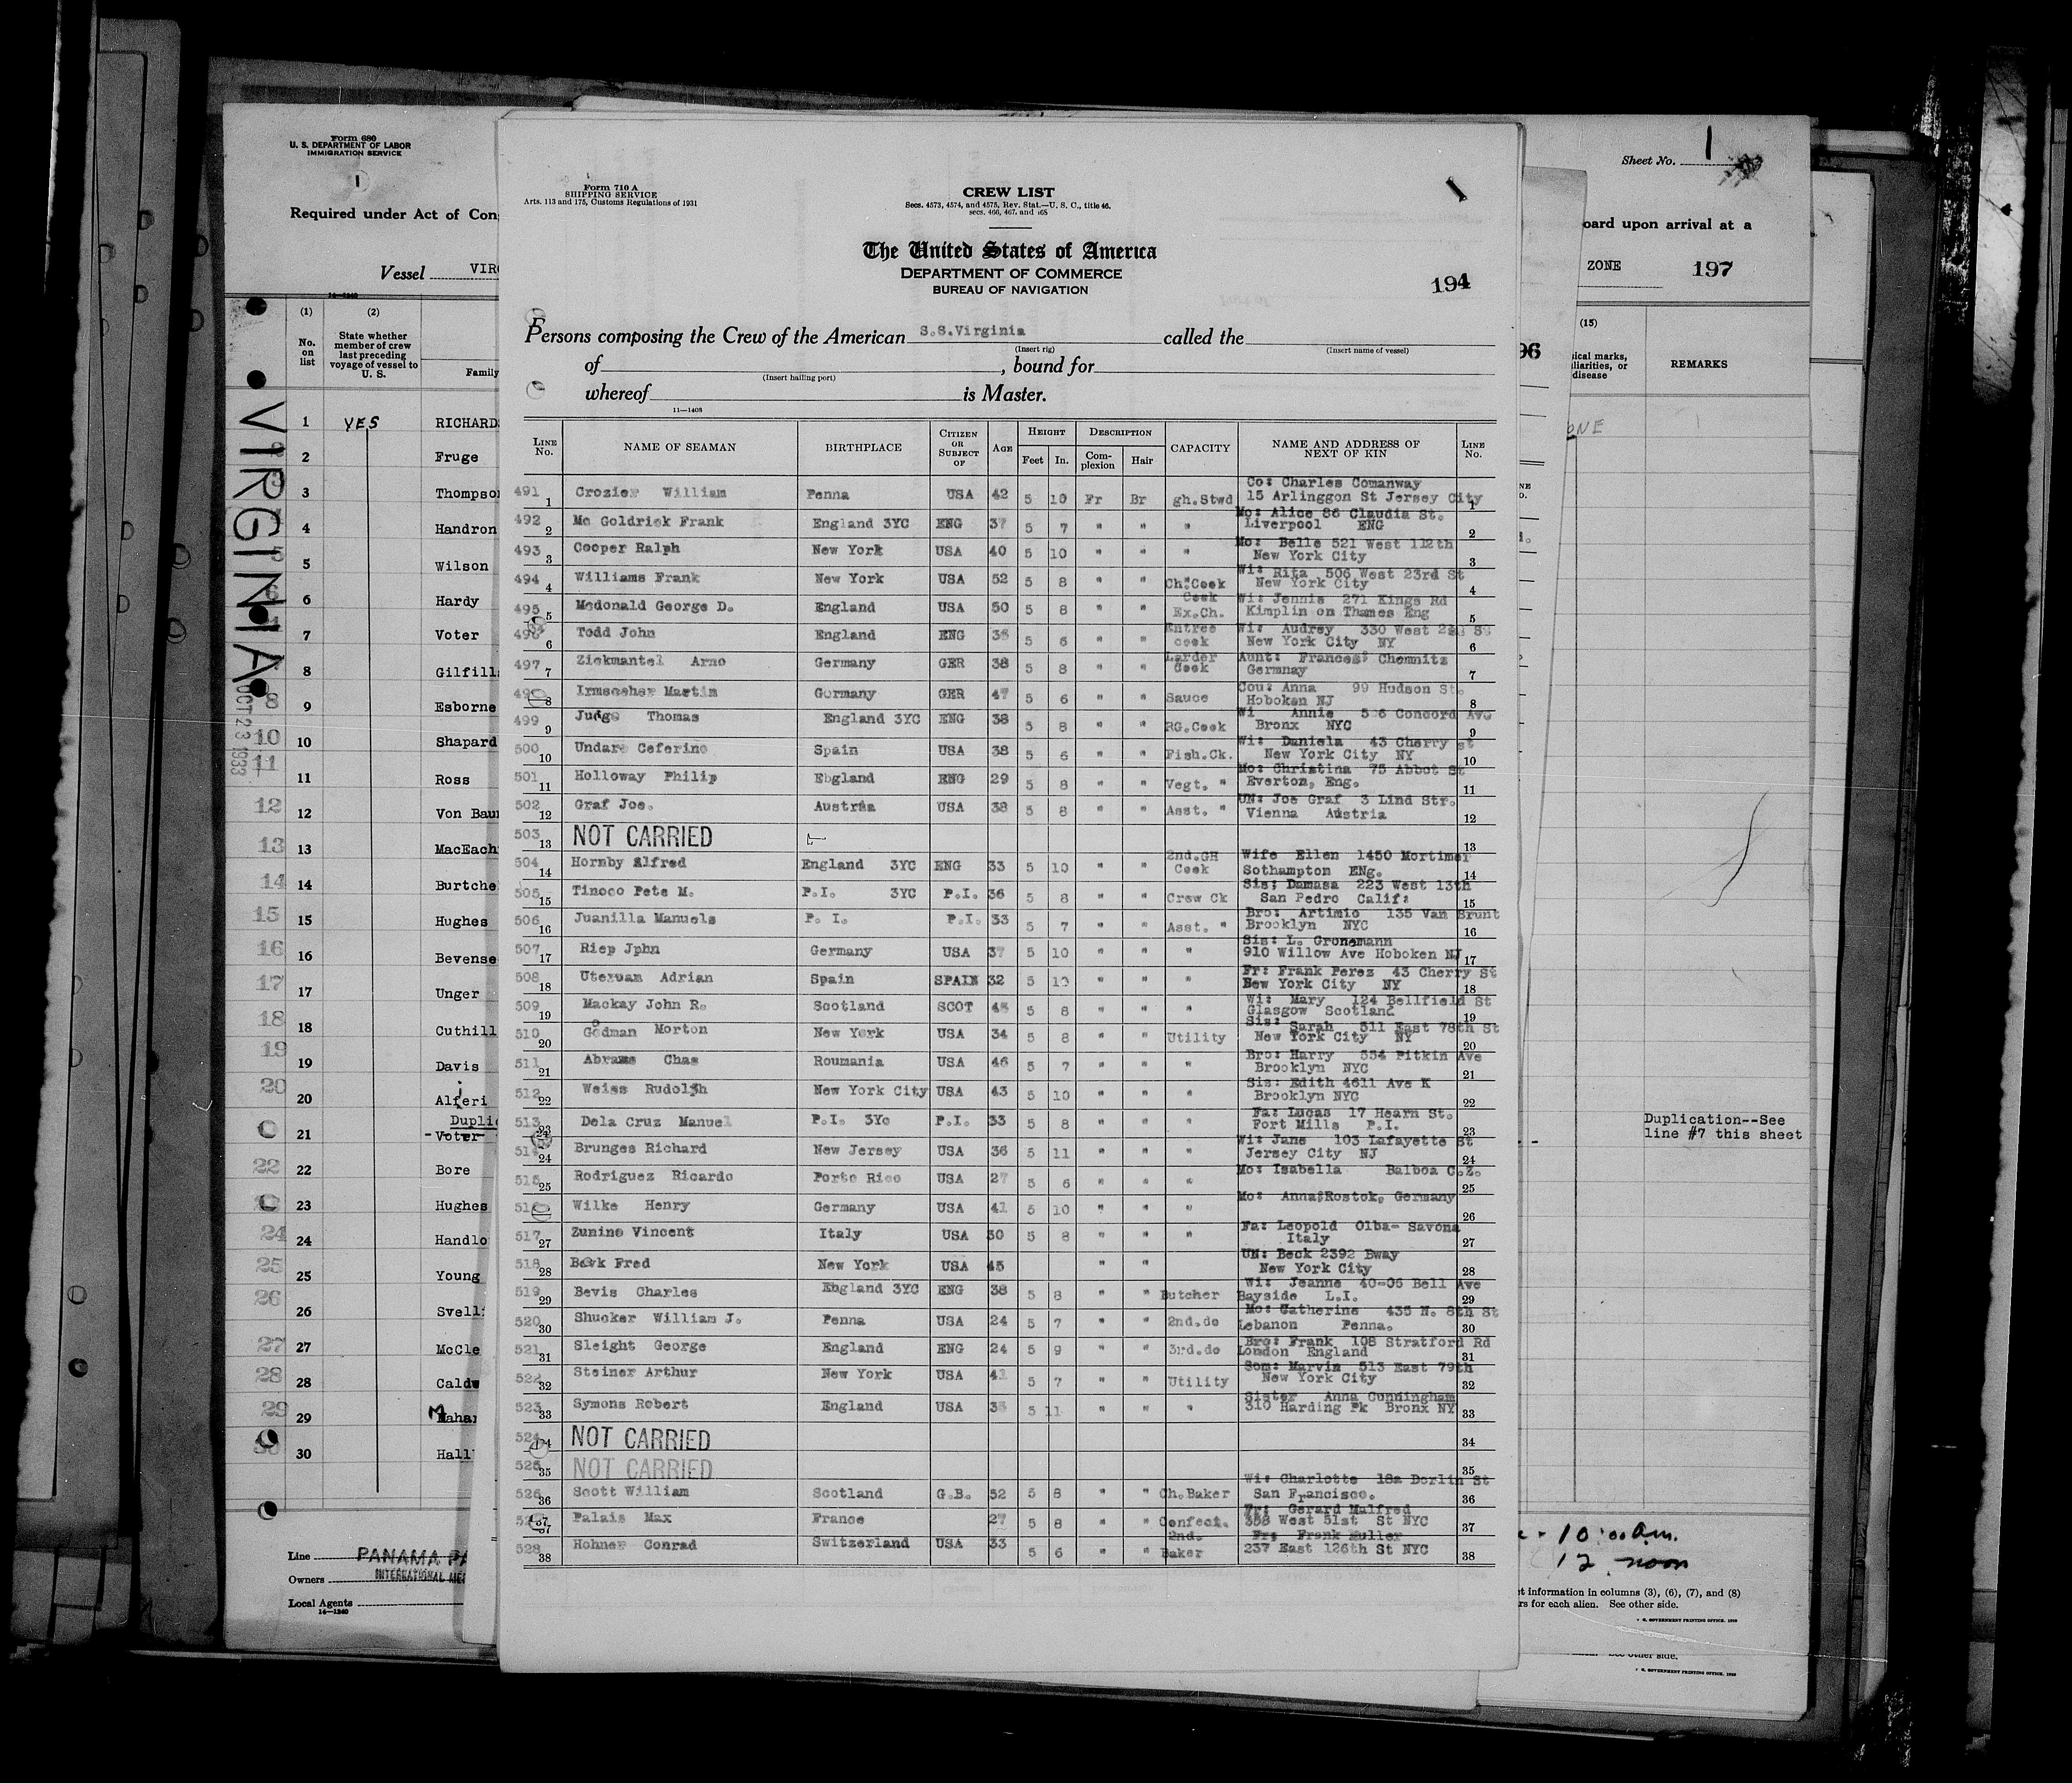 Form 680
U. S. DEPARTMENT OF LABOR
IMMIGRATION SERVICE
1
Required under Act of Con
Vessel VIR
(1) (2)
No. on list
State whether member of crew last preceding voyage of vessel to U. S.
Family
VIRGINIA
OCT 23 1933
1 YES RICHARD
2 Fruge
3 Thompso
4 Handron
5 Wilson
6 Hardy
7 Voter
8 Gilfill
9 Esborne
10 10 Shapard
11 11 Ross
12 12 Von Bau
13 13 MacEach
14 14 Burtche
15 15 Hughes
16 16 Bevense
17 17 Unger
18 18 Cuthill
19 19 Davis
20 20 Alferi
Dupli
21 Voter
22 22 Bore
23 Hughes
24 24 Handlo
25 25 Young
26 26 Svell
27 27 McCle
28 28 Caldw
29 29 Mahar
30 Hall
Line PANAMA PA
Owners INTERNATIONAL ME
Local Agents
14—1240
Form 710 A
SHIPPING SERVICE
Arts. 113 and 175, Customs Regulations of 1931
CREW LIST
Secs. 4573, 4574, and 4575, Rev. Stat.—U. S. C., title 46,
secs. 466, 467, and 468
The United States of America
DEPARTMENT OF COMMERCE
BUREAU OF NAVIGATION
194
Persons composing the Crew of the American S.S.Virginia called the
(Insert rig) (Insert name of vessel)
of , bound for
(Insert hailing port)
whereof is Master.
11—1408
LINE No. NAME OF SEAMAN BIRTHPLACE CITIZEN OR SUBJECT OF AGE HEIGHT Feet In. DESCRIPTION Complexion Hair CAPACITY NAME AND ADDRESS OF NEXT OF KIN LINE No.
491 1 Crozier William Penna USA 42 5 10 Fr Br gh.Stwd Co: Charles Comanway 15 Arlinggon St Jersey City 1
492 2 Mc Goldrick Frank England 3YC ENG 37 5 7 " " " Mo: Alice 86 Claudia St. Liverpool ENG 2
493 3 Cooper Ralph New York USA 40 5 10 " " " Mo: Belle 521 West 112th New York City 3
494 4 Williams Frank New York USA 52 5 8 " " Ch.Cook Wi: Rita 506 West 23rd St New York City 4
495 5 Mcdonald George D. England USA 50 5 8 " " Cook Ex.Ch. Wi: Jennie 271 Kings Rd Kimplin on Thames Eng 5
6 Todd John England ENG 5 6 " " Entree cook Wi: Audrey 330 West St New York City NY 6
497 7 Ziekmantel Arno Germany GER 38 5 8 " " Larder Cook Aunt: Frances: Chemnitz Germnay 7
8 Irmsecher Martin Germany GER 47 5 6 " " Sauce Cou: Anna 99 Hudson St. Hoboken NJ 8
499 9 Judge Thomas England 3YC ENG 38 5 8 " " RG.Cook Wi Annie Concord Ave Bronx NYC 9
500 10 Undare Ceferino Spain USA 38 5 6 " " Fish.Ck. Wi: Daniela 43 Cherry st New York City NY 10
501 11 Holloway Philip Ebgland ENG 29 5 8 " " Vegt. " Mo: Christina 75 Abbot St Everton, Eng. 11
502 12 Graf Joe. Austria USA 38 5 8 " " Asst. " UN: Joe Graf 3 Lind Str. Vienna Austria 12
503 13 NOT CARRIED 13
504 14 Hornby Alfred England 3YC ENG 33 5 10 " " 2nd.GH Cook Wife Ellen 1450 Mortimer Sothampton ENg. 14
505 15 Tinoco Pete M. P.I. 3YC P.I. 36 5 8 " " Crew Ck Sis; Damasa 223 West 13th San Pedro Calif: 15
506 16 Juanilla Manuels P. I. P.I. 33 5 7 " " Asst. " Bro: Artimio 135 Van Brunt Brooklyn NYC 16
507 17 Riep Jphn Germany USA 37 5 10 " " " Sis: L. Gronemann 910 Willow Ave Hoboken NJ 17
508 18 Uteruam Adrian Spain SPAIN 32 5 10 " " " Fr: Frank Perez 43 Cherry St New York City NY 18
509 19 Mackay John R. Scotland SCOT 5 8 " " " Wi: Mary 124 Bellfield St Glasgow Scotland 19
510 20 Godman Morton New York USA 34 5 8 " " Utility Sis: Sarah 511 East 78th St New York City NY 20
511 21 Abrams Chas Roumania USA 46 5 7 " " " Bro: Harry 554 Pitkin Ave Brooklyn NYC 21
512 22 Weiss Rudolph New York City USA 43 5 10 " " " Sis: Edith 4611 Ave K Brooklyn NYC 22
513 23 Dela Cruz Manuel P.I. 3Yc P.I. 33 5 8 " " " Fa: Lucas 17 Hearn St. Fort Mills P.I. 23
24 Brunges Richard New Jersey USA 36 5 11 " " " Wi: Jane 103 Lafayette St Jersey City NJ 24
515 25 Rodriguez Ricardo Porto Rico USA 27 5 6 " " " Mo: Isabella Balboa C.Z. 25
Wilke Henry Germany USA 41 5 10 " " " Mo: Anna Rostok, Germany 26
517 27 Zunino Vincent Italy USA 30 5 8 " " " Fa: Leopold Olba- Savona Italy 27
518 28 Beck Fred New York USA 45 " " UN: Beck 2392 Bway New York City 28
519 29 Bevis Charles England 3YC ENG 38 5 8 " " Butcher Wi: Jeanne 40-05 Bell Ave Bayside L.I. 29
520 30 Shucker William J. Penna USA 24 5 7 " " 2nd.do Mo: Catherine 435 N. 8th St Lebanon Penna. 30
521 31 Sleight George England ENG 24 5 9 " " 3rd.do Bro: Frank 108 Stratford Rd London England 31
522 32 Steiner Arthur New York USA 41 5 7 " " Utility Son: Marvin 513 East 79th New York City 32
523 33 Symons Robert England USA 5 11 " " " Sister Anna Cunningham 310 Harding Pk Bronx NY 33
524 NOT CARRIED 34
525 35 NOT CARRIED 35
526 36 Scott William Scotland G.B. 52 5 8 " " Ch.Baker Wi: Charlotte 18a Dorlin St San Francisco. 36
37 Palais Max France 27 5 8 " " Confect. Fr: Gerard Malfred 358 West 51st St NYC 37
528 38 Hohner Conrad Switzerland USA 33 5 6 " " 2nd. Baker Fr: Frank Muller 237 East 126th St NYC 38
Sheet No. 1
oard upon arrival at a
ZONE 197
96
(15)
ical marks, liarities, or disease
REMARKS
ONE
Duplication--See
line #7 this sheet
10:00 am.
12 noon
t information in columns (3), (6), (7), and (8)
rs for each alien. See other side.
GOVERNMENT PRINTING OFFICE
See other side.
GOVERNMENT PRINTING OFFICE